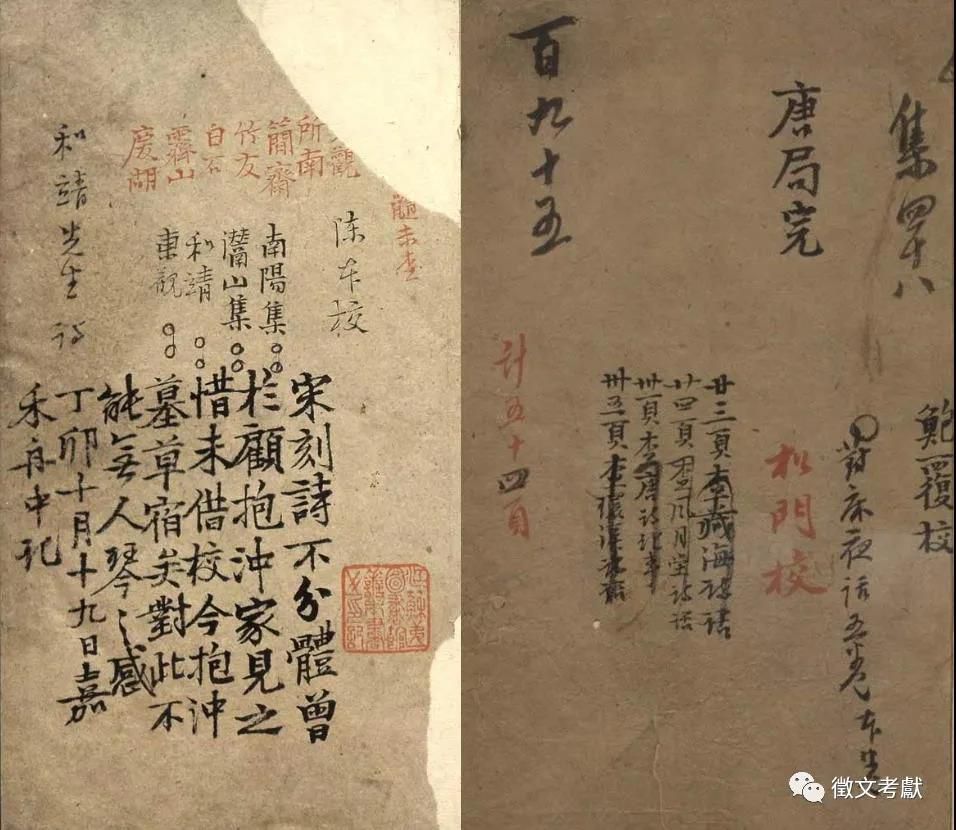 觀
所南
簡齋
竹友
白石
霽山
慶湖
陈本校
南陽集
灊山集
和靖
東觀
和靖先生詩
宋刻詩不分體曾
於顧抱沖家見之
惜未借校今抱沖
墓草宿矣對此不
能無人琴之感
丁卯十月十九日嘉
禾舟中記
集四十八
鮑覆校
對床夜話五卷
唐局完
松門校
廿三頁查藏海詩話
廿四頁查風月堂詩話
卅一頁查唐詩紀事
卅五頁查
百九十五
計五十四頁
徵文考獻